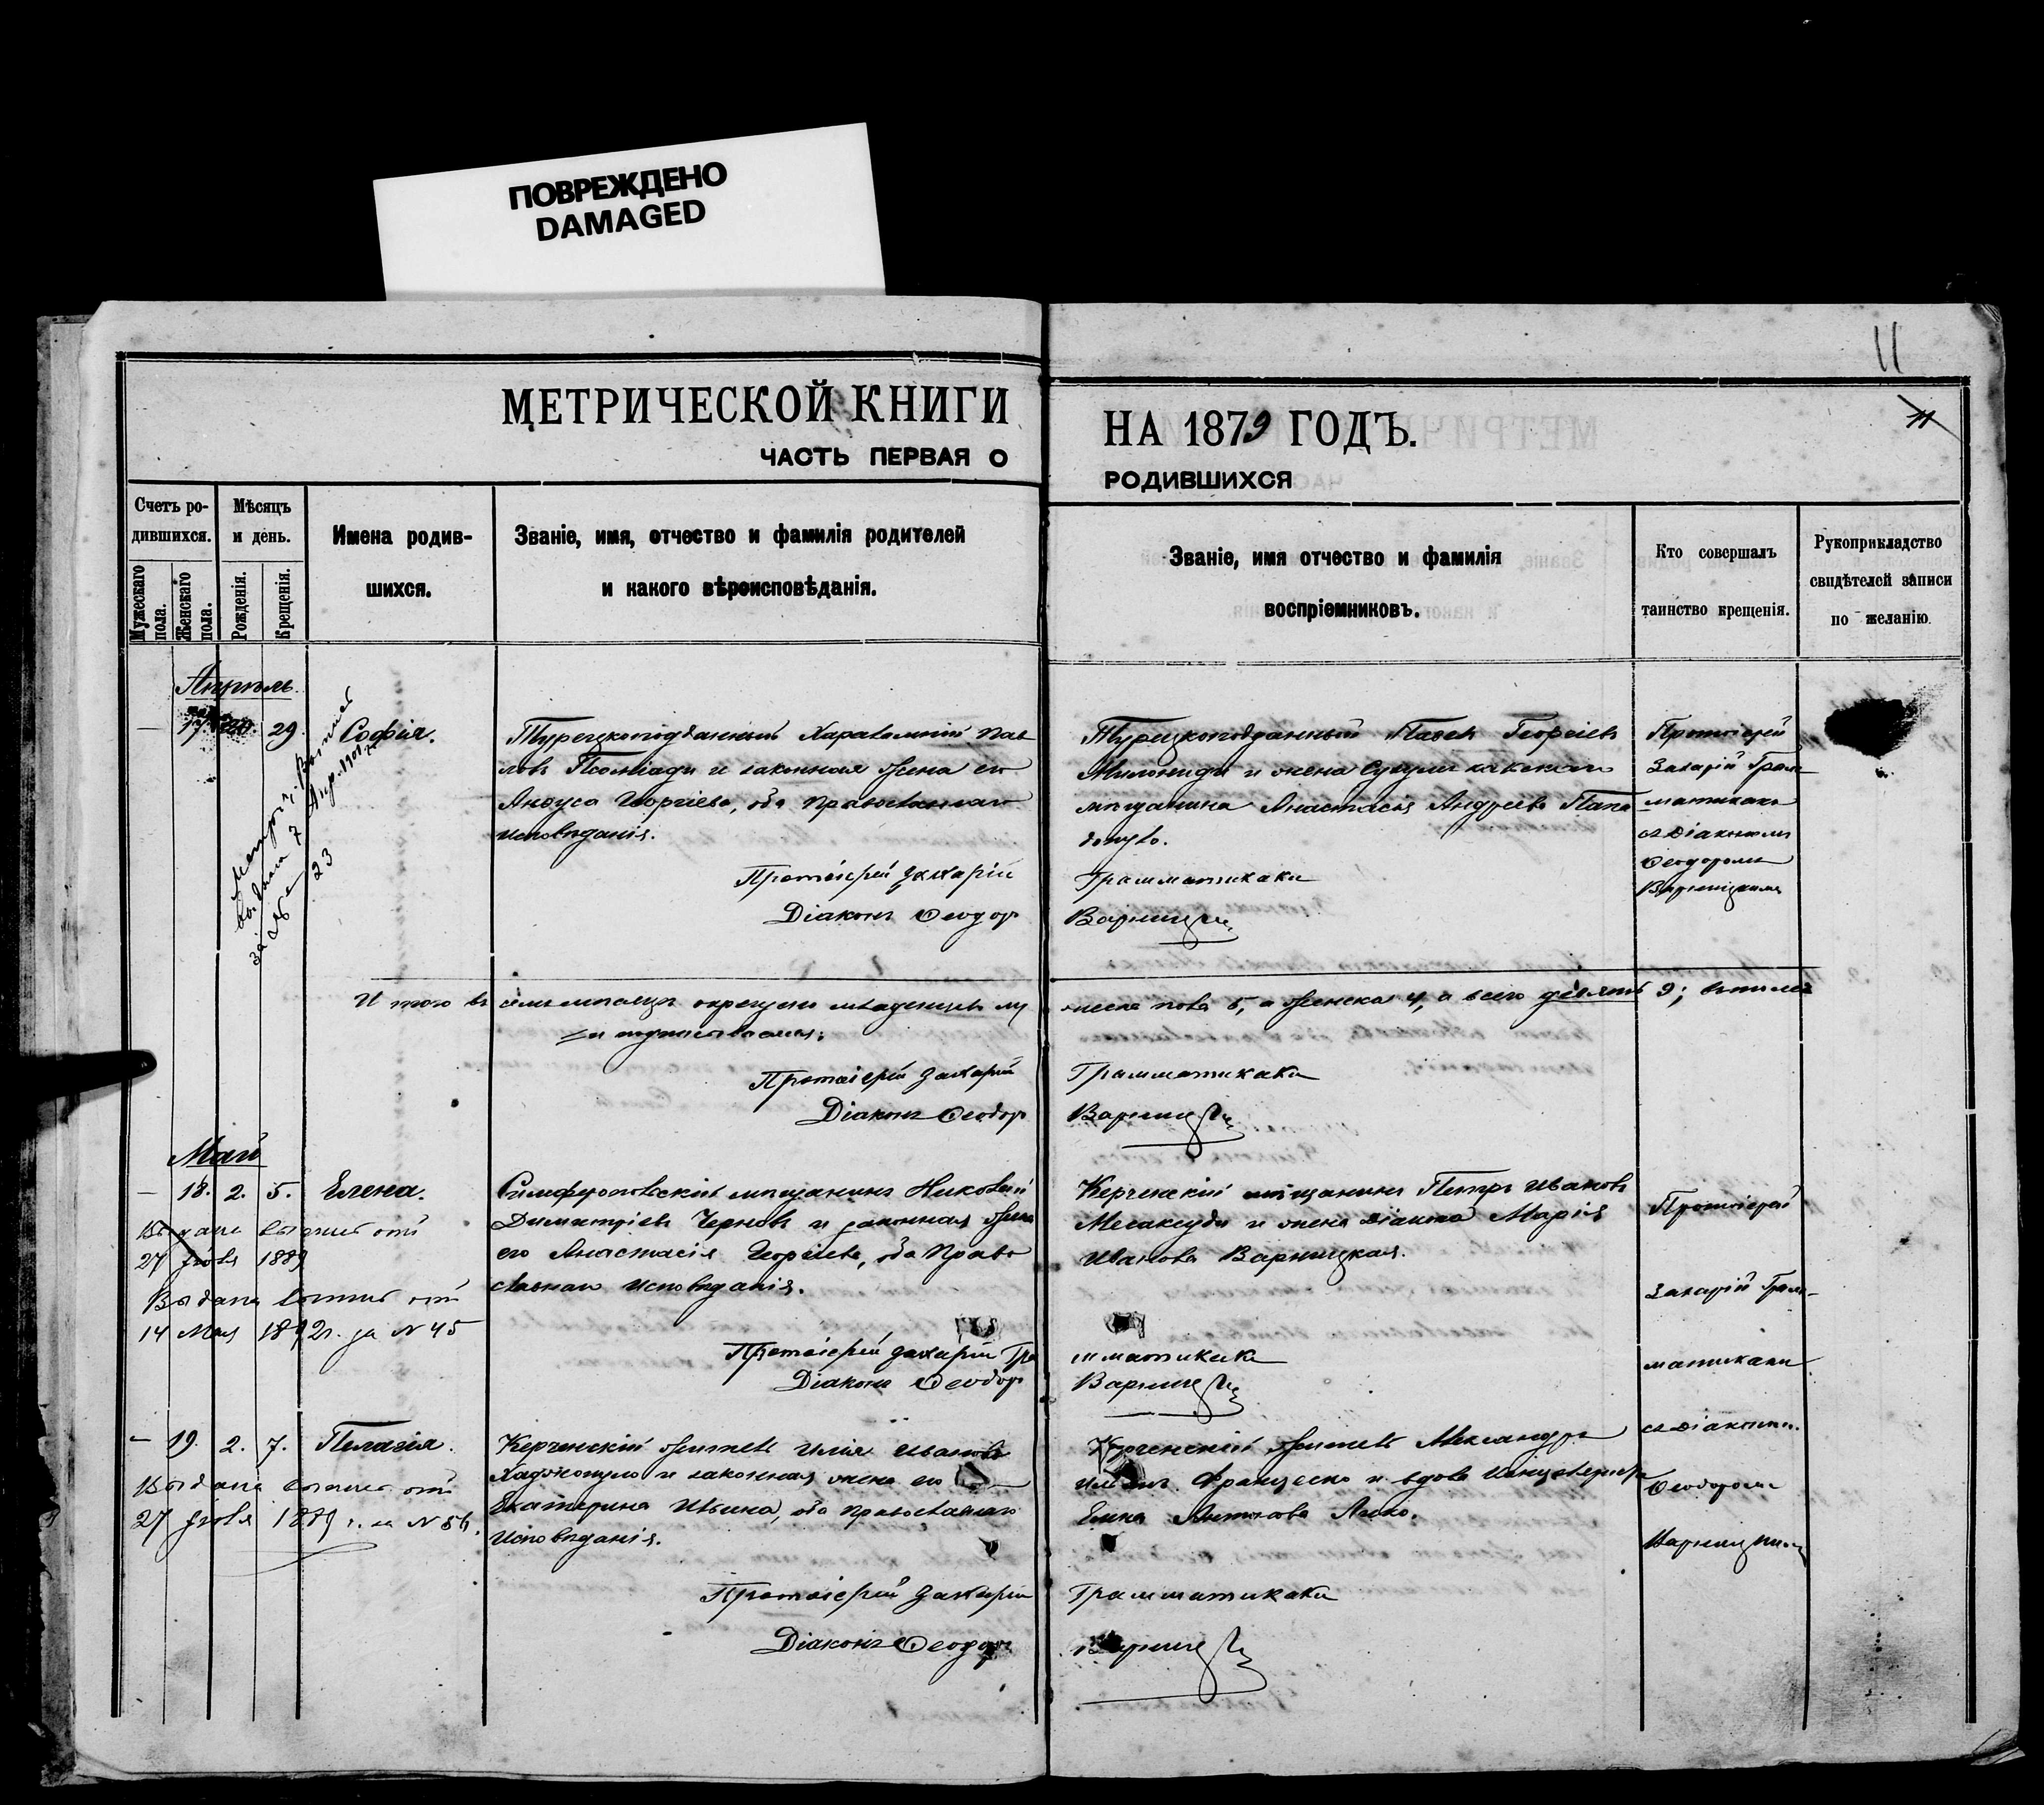 ПОВРЕЖДЕНО
DAMAGED
11
МЕТРИЧЕСКОЙ КНИГИ
НА 1879 ГОДЪ.
11
ЧАСТЬ ПЕРВАЯ О
РОДИВШИХСЯ
Счетъ ро-
дившихся.
Мужескаго пола.
Женскаго пола.
Мѣсяцъ
и день.
Рожденія.
Крещенія.
Имена родив-
шихся.
Званіе, имя, отчество и фамилія родителей
и какого вѣроисповѣданія.
Званіе, имя отчество и фамилія
воспріемниковъ.
Кто совершалъ
таинство крещенія.
Рукоприкладство
свидѣтелей записи
по желанію.
Апрѣль.
— 17. 29. Софія.
выдана 7 Апр. 1901
за № 23
Турецкоподданный Харалампій Пав
ловъ и законная жена его
Георгіева, оба Православнаго
исповѣданія.
Протоіерей Захарій
Діаконъ Ѳеодоръ
Турецкоподданный Павелъ Георгіевъ
и жена
мѣщанина Анастасія Андреева Папа
Грамматикаки
Варницкій
Протоіерей
Захарій Грам
матикаки
съ Діакономъ
Ѳеодоромъ
Варницкимъ
И того въ семъ мѣсяцѣ окрещено младенцевъ му
жеска пола 5, а женска 4, а всего девять 9;
и подписываемся:
Протоіерей Захарій
Діаконъ Ѳеодоръ
Грамматикаки
Варницкій
Май
— 18. 2. 5. Елена.
Выдана выпись отъ
27 1889
Выдана выпись отъ
14 Мая 1892 г. за N 45
Симферопольскій мѣщанинъ Николай
Димитріевъ Черновъ и законная жена
его Анастасія Георгіева, оба Право
славнаго исповѣданія.
Протоіерей Захарій Гра
Діаконъ Ѳеодоръ
Керченскій мѣщанинъ Петръ Ивановъ
Месаксуди и жена діакона Марія
Иванова Варницкая.
мматикаки
Варницкій
Протоіерей
Захарій Грам-
матикаки
— 19. 2. 7. Пелагія.
Выдана выпись отъ
27 1889 г. за N 56.
Керченскій житель Илія Ивановъ
и законная жена его
Екатерина Ильина, оба Православнаго
исповѣданія.
Протоіерей Захарій
Діаконъ Ѳеодоръ
Керченскій житель Александръ
Франческо и вдова
Елена Антонова
Грамматикаки
Варницкій
съ Діакономъ
Ѳеодоромъ
Варницкимъ